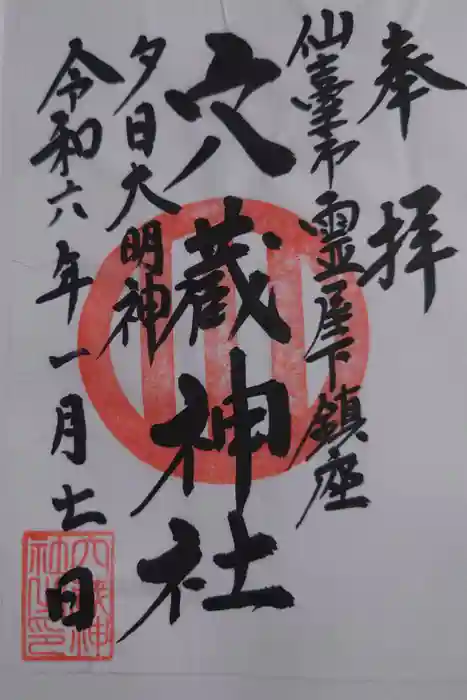 奉拝
仙臺市霊屋下鎮座
穴蔵神社
夕日大明神
令和六年一月十一日
穴蔵神社之印